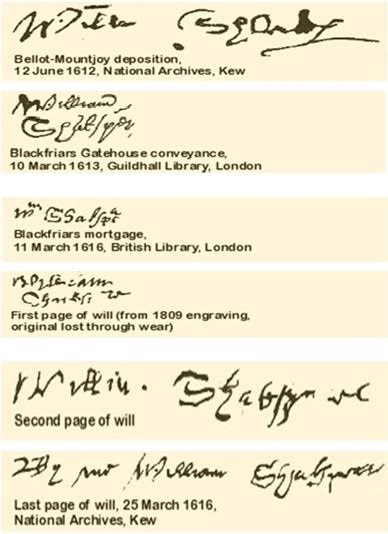 Bellot-Mountjoy deposition,
12 June 1612, National Archives, Kew
William
Blackfriars Gatehouse conveyance,
10 March 1613, Guildhall Library, London
Blackfriars mortgage,
11 March 1616, British Library, London
First page of will (from 1809 engraving,
original lost through wear)
Second page of will
By me William
Last page of will, 25 March 1616,
National Archives, Kew